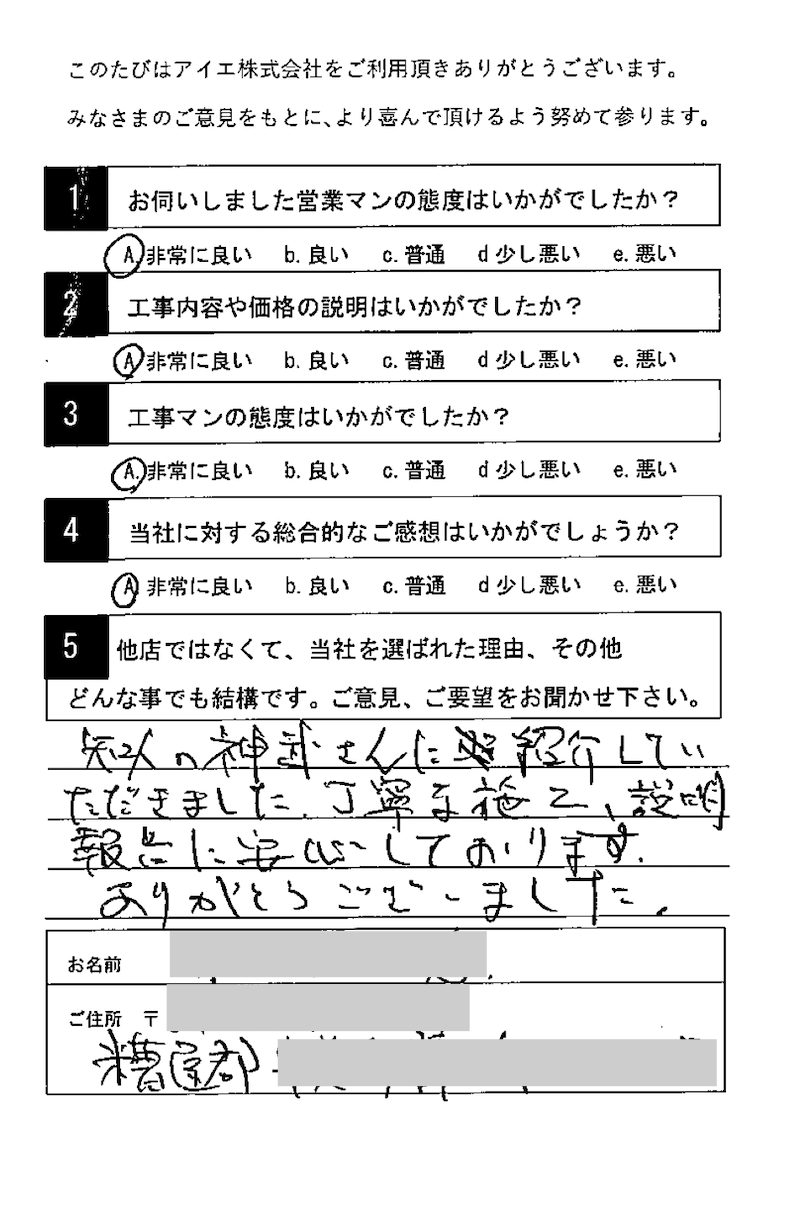 このたびはアイエ株式会社をご利用頂きありがとうございます。
みなさまのご意見をもとに、より喜んで頂けるよう努めて参ります。
1 お伺いしました営業マンの態度はいかがでしたか？
A. 非常に良い b. 良い c. 普通 d 少し悪い e. 悪い
2 工事内容や価格の説明はいかがでしたか？
A 非常に良い b. 良い c. 普通 d 少し悪い e. 悪い
3 工事マンの態度はいかがでしたか？
A. 非常に良い b. 良い c. 普通 d 少し悪い e. 悪い
4 当社に対する総合的なご感想はいかがでしょうか？
A 非常に良い b. 良い c. 普通 d 少し悪い e. 悪い
5 他店ではなくて、当社を選ばれた理由、その他
どんな事でも結構です。ご意見、ご要望をお聞かせ下さい。
知人の神武さんに紹介してい
ただきました。丁寧な施工、説明
報告に安心しております。
ありがとうございました。
お名前
ご住所 〒
糟屋郡